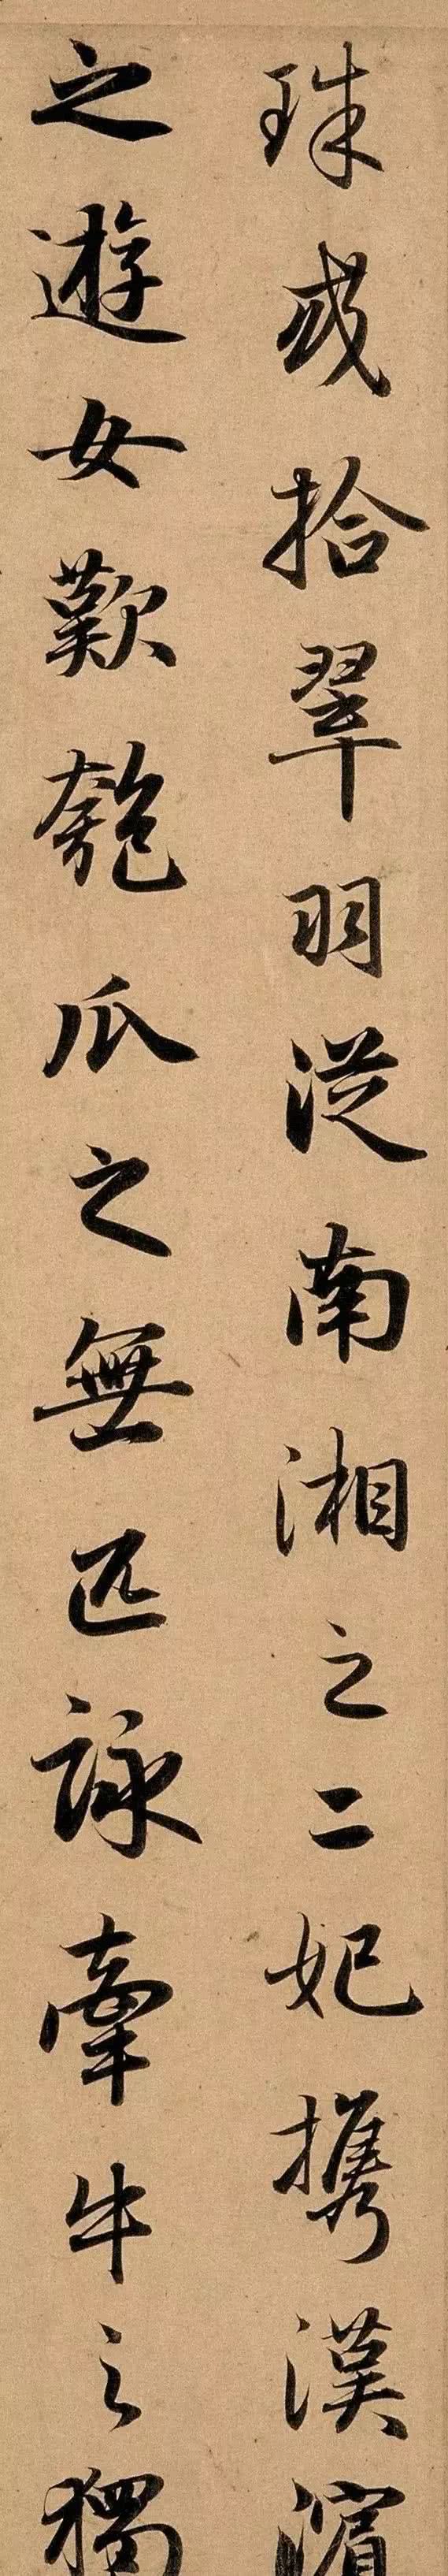 珠或拾翠羽從南湘之二妃攜漢濵
之遊女歎匏瓜之無匹詠牽牛之獨